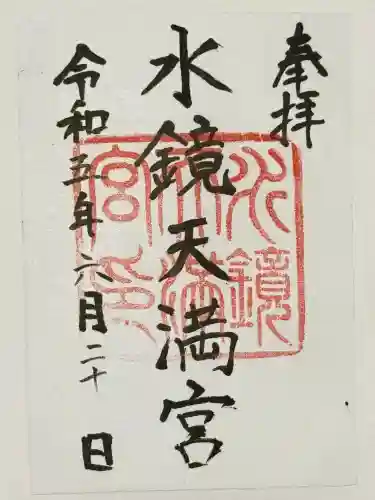 奉拝
水鏡天満宮
令和五年六月二十日
水鏡天満宮印